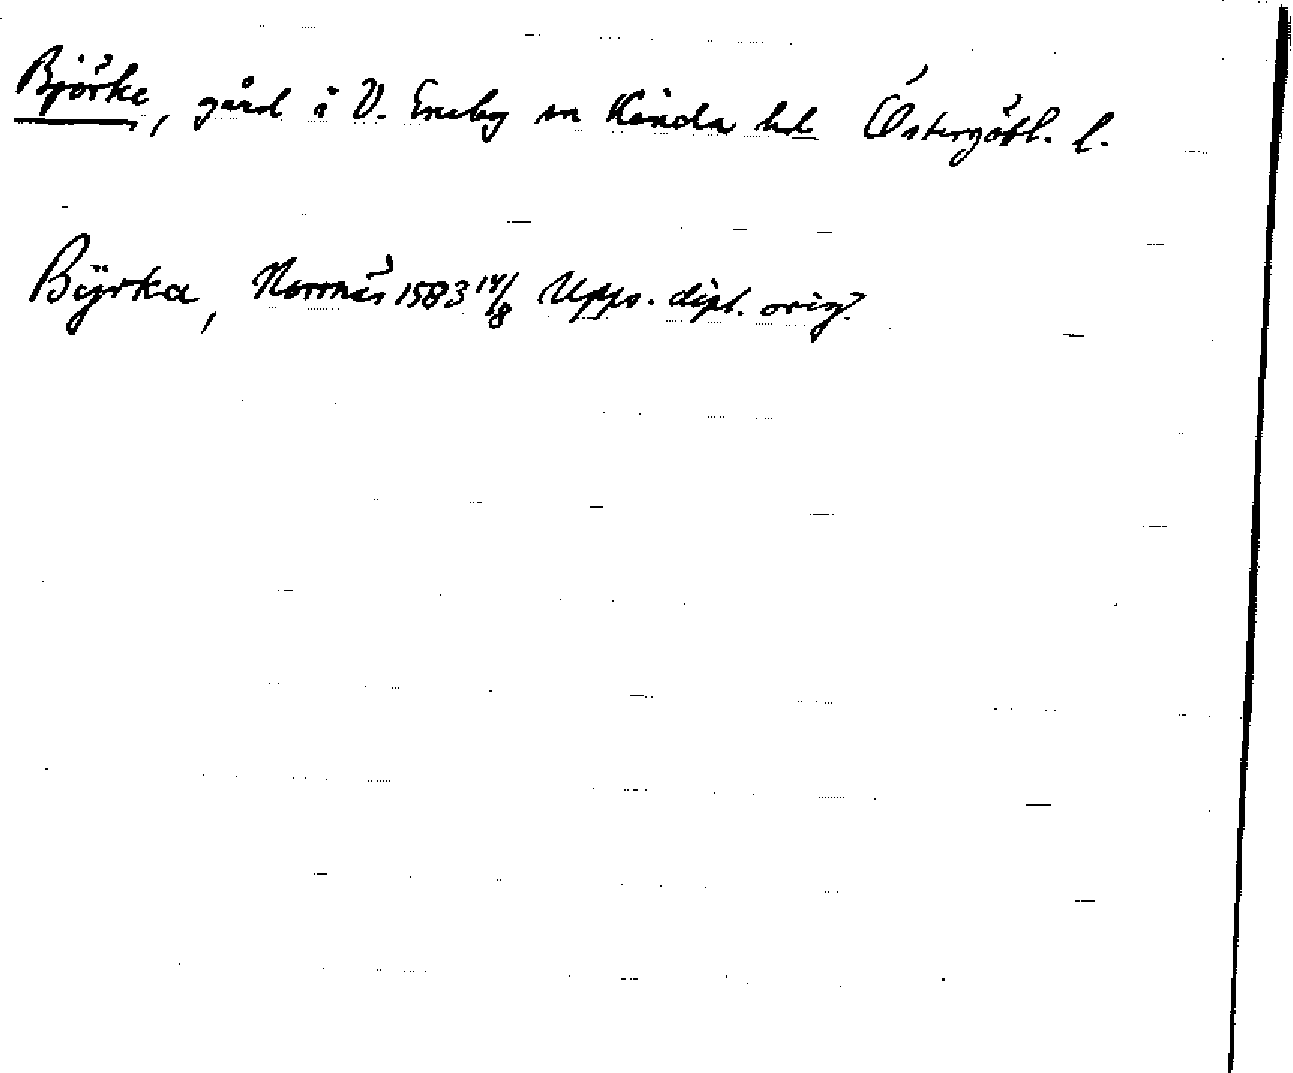 Björke, gård i V. Eneby sn Kinda hd Östergötl. l.
Bÿrka, Norrnäs 1583 14/8 Upps. dipl. orig.